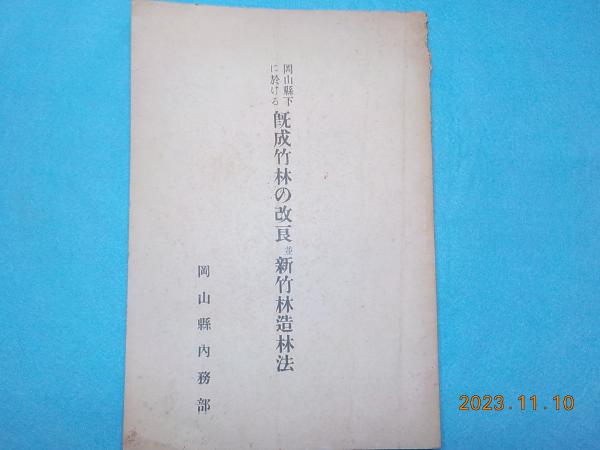 岡山縣下に於ける既成竹林の改良並新竹林造林法
岡山縣內務部
2023.11.10